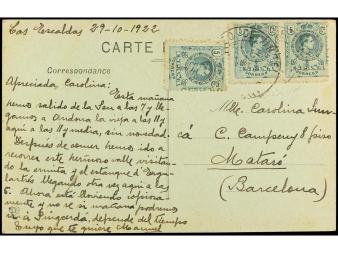 Las Escaldas 29-10-1922
CARTE
Correspondance
Apreciada Carolina: Esta mañana
hemos salido de la Seu a las 7 y lle
gamos a Andorra la vieja a las 11 y
aquí a las 11 y media, sin novedad.
Después de comer hemos ido a
recorrer este hermoso valle visitan
do la ermita y el estanque d'Engo
lasters llegando otra vez aquí a las
5. Ahora está lloviendo copiosa
mente y no se si mañana podremos
ir a Puigcerdá, depende del tiempo
Tuyo que te quiere Manuel
CORREOS
CORREOS
CORREOS
Mlle. Carolina
cá C. Campeny 8 piso
Mataró
(Barcelona)